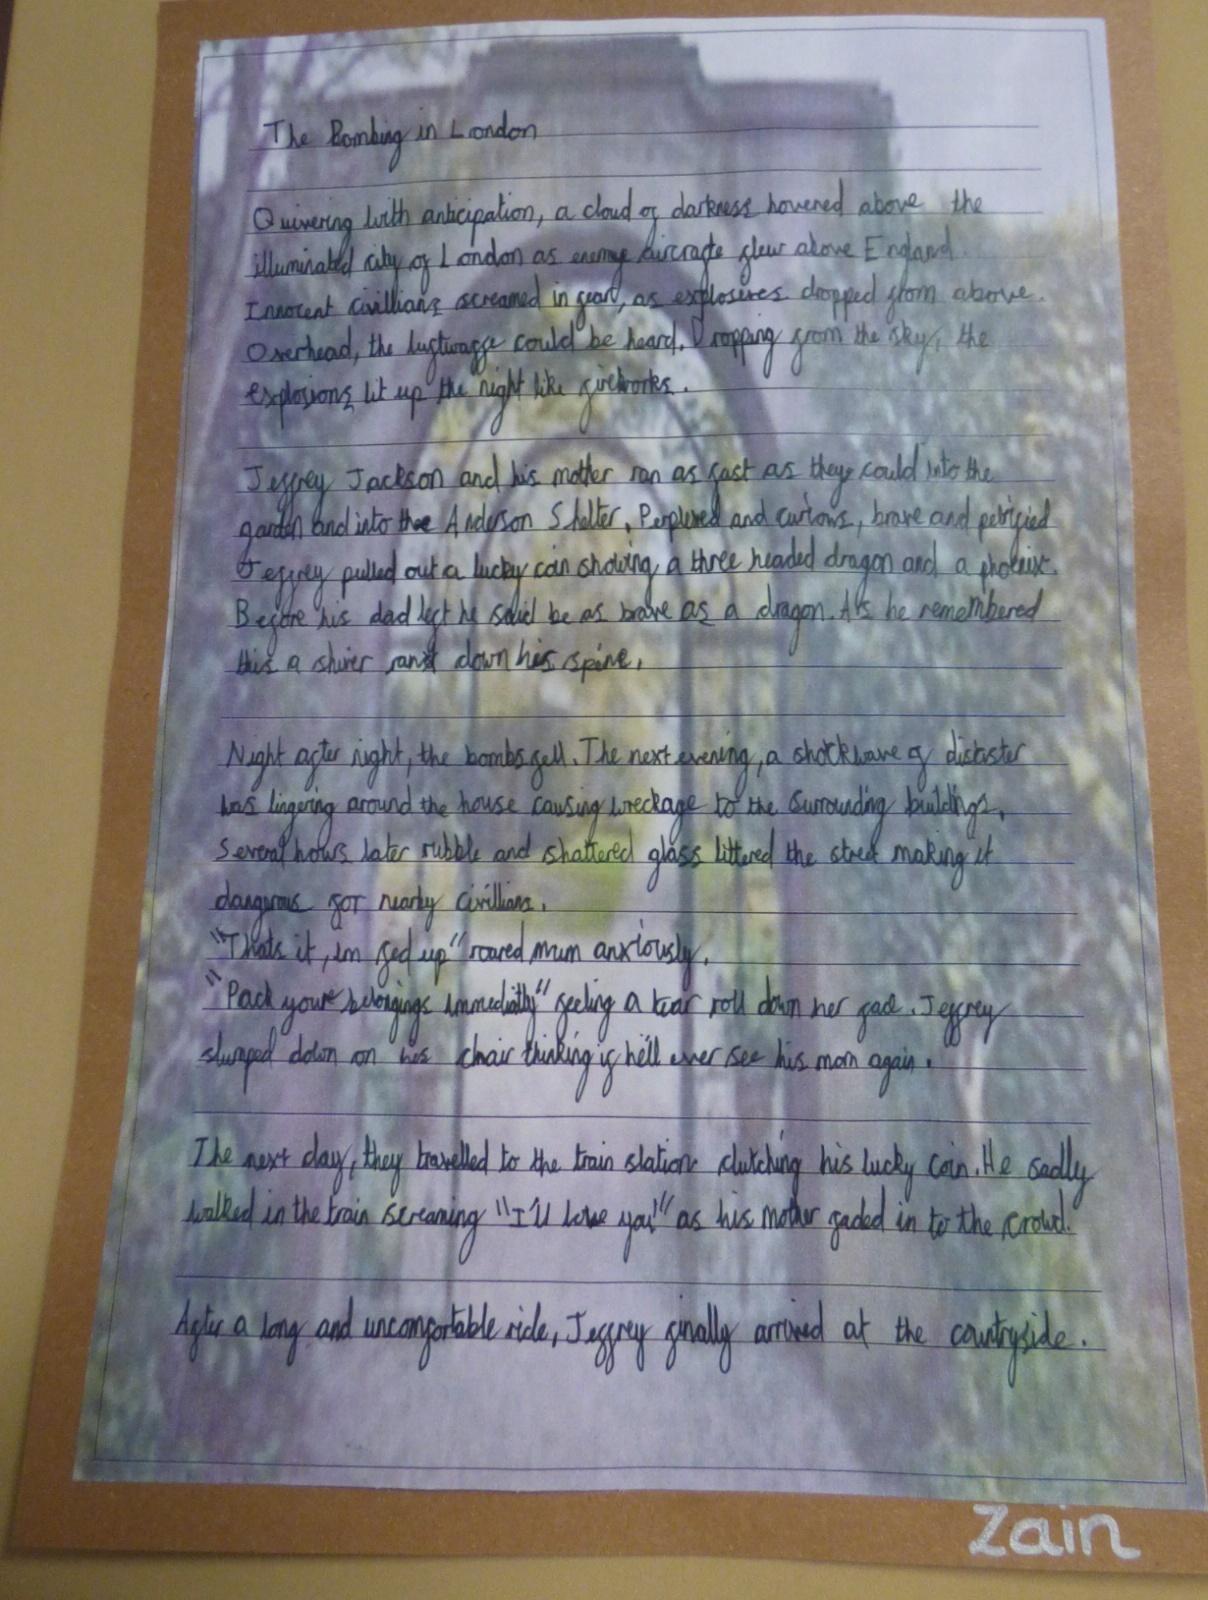 The Bombing in London
Quivering with anticipation, a cloud of darkness hovered above the
illuminated city of London as enemy aircrafte flew above England.
Innocent civillians screamed in fear, as explosives dropped from above.
Overhead, the luftwaffe could be heard. Dropping from the sky, the
explosions lit up the night like fireworks.
Jeffrey Jackson and his mother ran as fast as they could into the
garden and into the Anderson Shelter. Perplexed and curious, brave and petrified
Jeffrey pulled out a lucky coin showing a three headed dragon and a phoenix.
Before his dad left he said be as brave as a dragon. As he remembered
this a shiver ran down his spine.
Night after night, the bombs fell. The next evening, a shockwave of disaster
was lingering around the house causing wreckage to the surrounding buildings.
Several hours later rubble and shattered glass littered the street making it
dangerous for nearby civillians.
"Thats it, im fed up" roared mum anxiously.
"Pack your belongings immediatly" feeling a tear roll down her face. Jeffrey
slumped down on his chair thinking if he'll ever see his mom again.
The next day, they travelled to the train station clutching his lucky coin. He sadly
walked in the train screaming "I'll love you!" as his mother faded in to the crowd.
After a long and uncomfortable ride, Jeffrey finally arrived at the countryside.
Zain